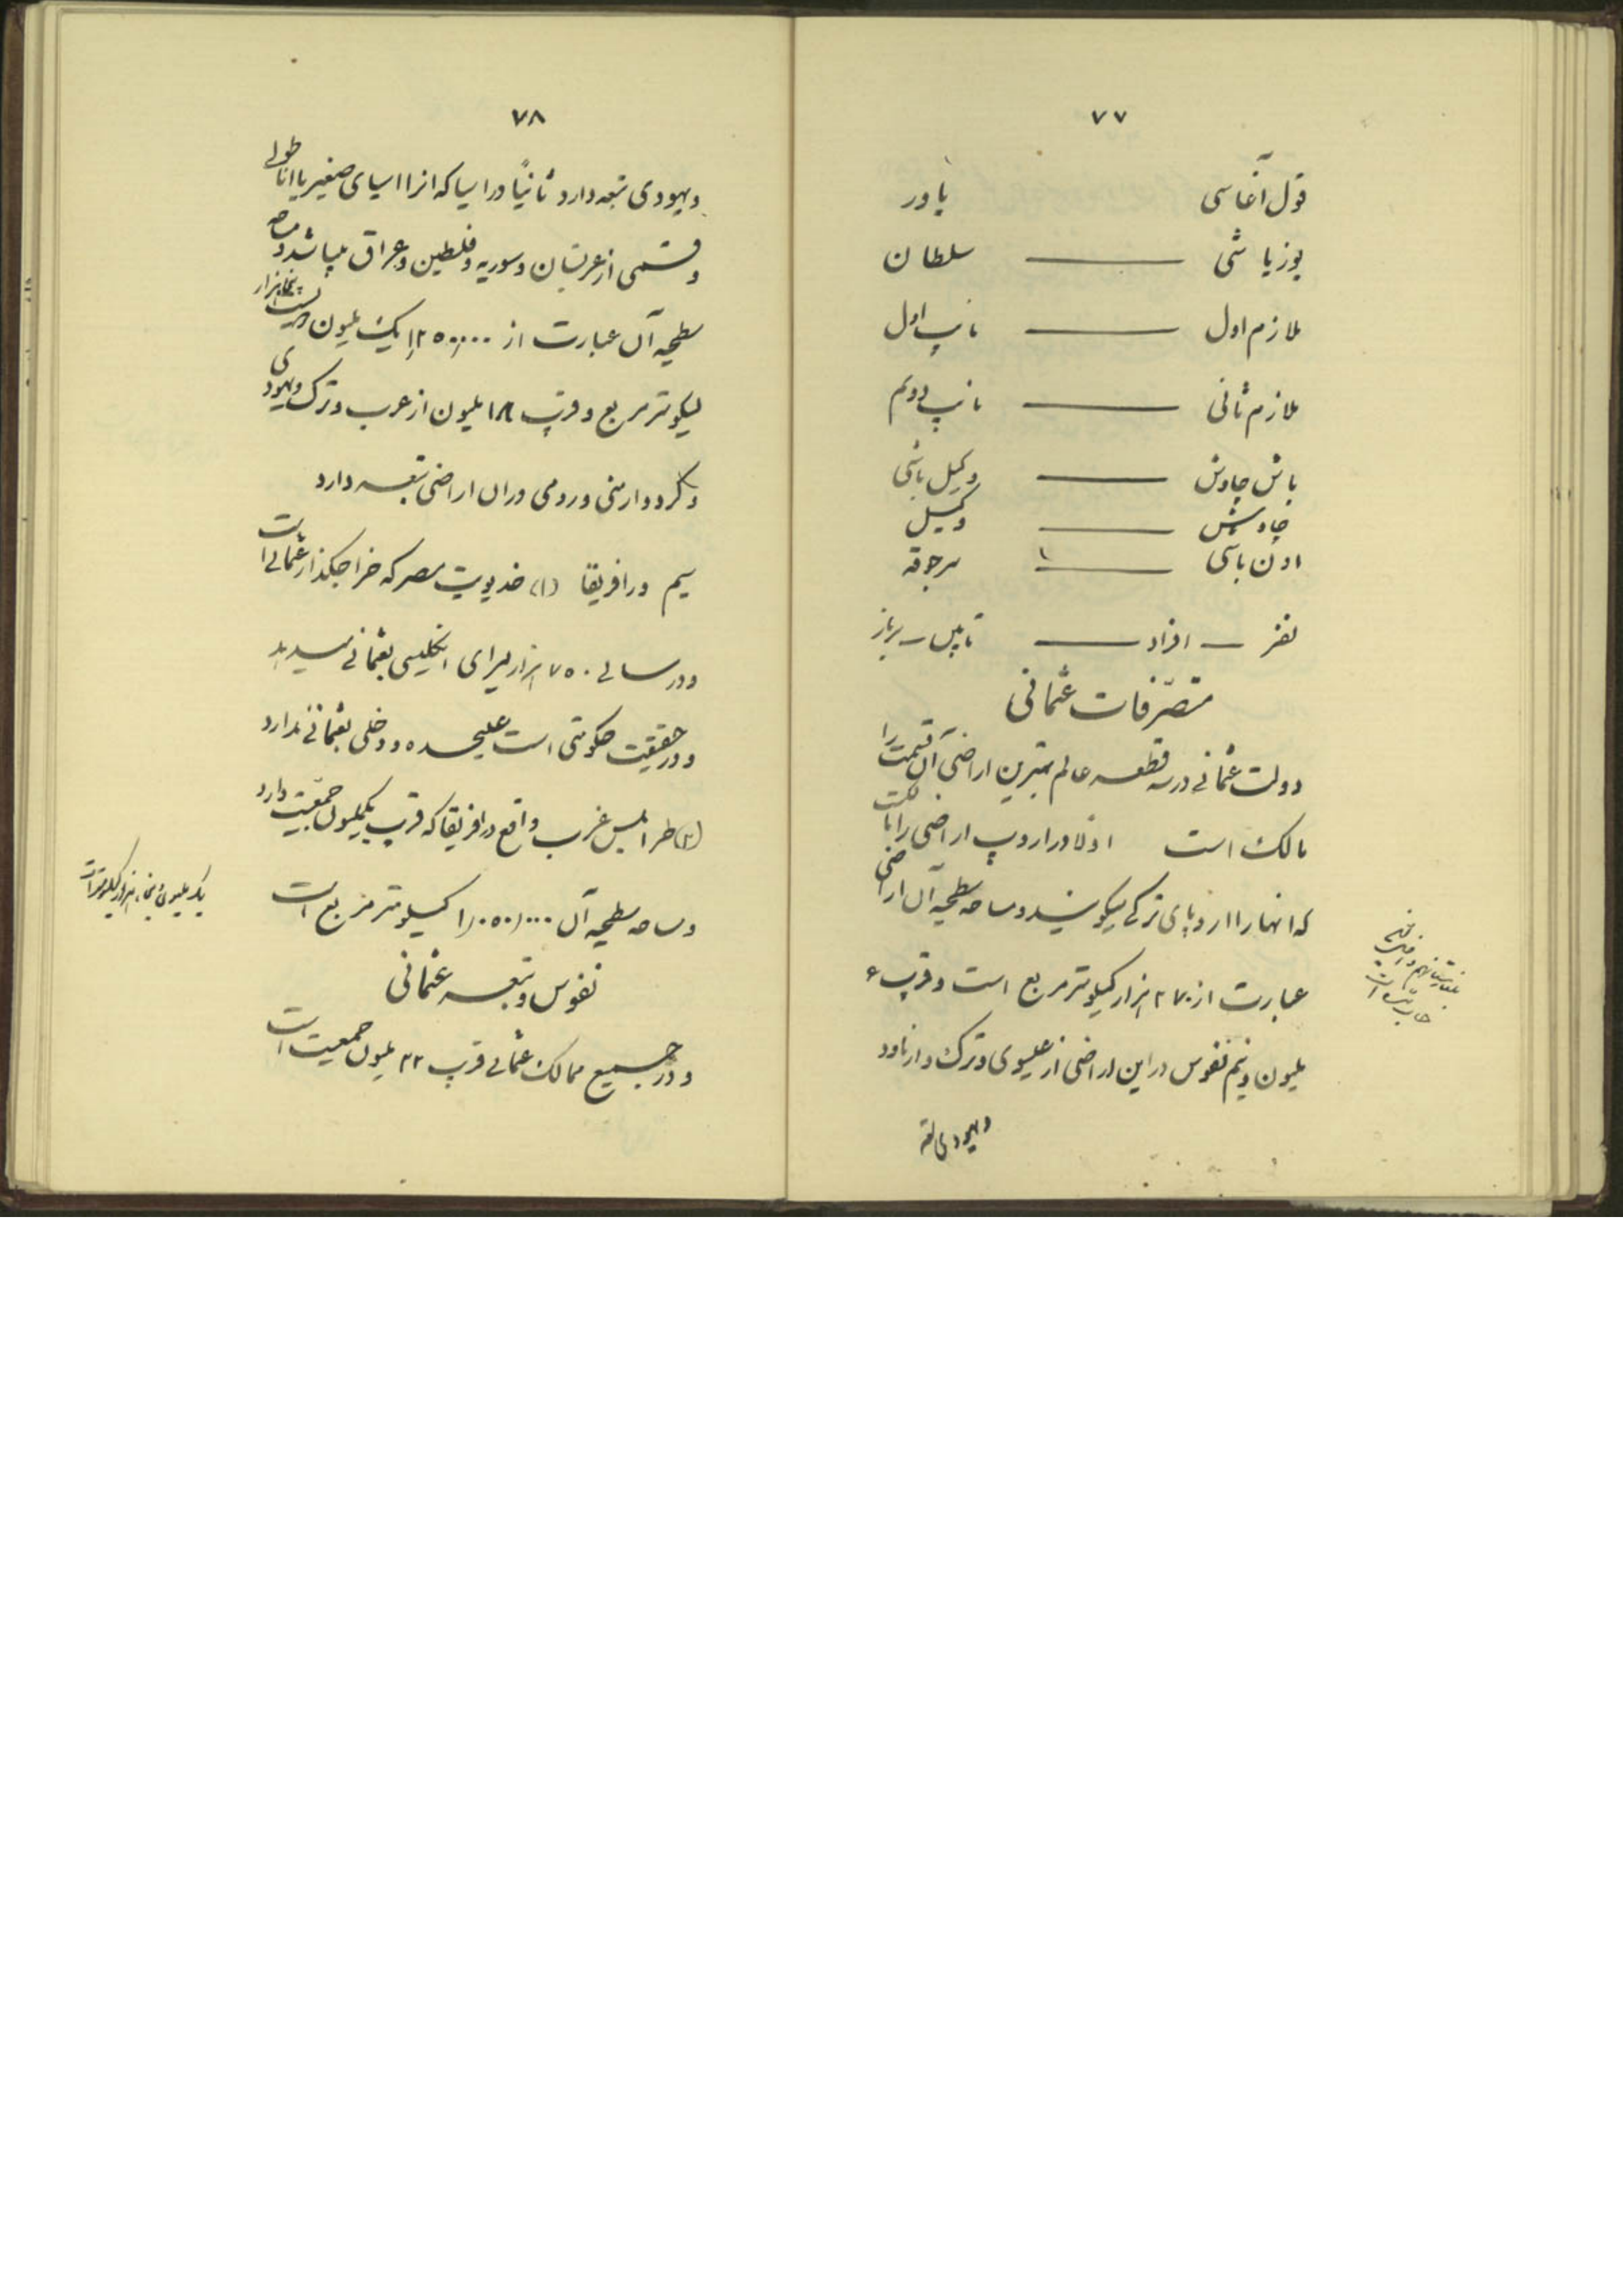 ۷۷
قول آغاسی یاور
یوزباشی — سلطان
ملازم اول — نایب اول
ملازم ثانی — نایب دویم
باش چاوش — وکیل باشی
چاوش — وکیل
اون باشی — سرجوقه
نفر — افراد — تابین — سرباز
متصرّفات عثمانی
دولت عثمانی در سه قطعه عالم بهترین اراضی آن قسمت را
مالک است اولا در اروپ اراضی را مالک است
که انها را اروپای ترکی میگویند و مساحه سطحیه آن اراضی
عبارت از ۲۷۰ هزار کیلومتر مربع است و قریب ۶
ملیون و نیم نفوس در این اراضی از عیسوی و ترک و ارناود
و یهودی
۷۸
و یهودی تبعه دارد ثانیًا در اسیا که انرا اسیای صغیر یا اناطولی
و قسمی از عربستان و سوریه و فلسطین و عراق میباشد و مساحه
سطحیه آن عبارت از ۱٫۲۵۰٫۰۰۰ یک ملیون و دویست پنجاه هزار
کیلومتر مربع و قریب ۱۸ ملیون از عرب و ترک و یهودی
و کرد و ارمنی و رومی در ان اراضی تبعه دارد
سیم در افریقا (۱) خدیویت مصر که خراجگذار عثمانی است
و در سالی ۷۵۰ هزار لیرای انگلیسی بعثمانی میدهد
و در حقیقت حکومتی است علیحده و دخلی بعثمانی ندارد
(۲) طرابلس غرب واقع در افریقا که قریب یکملیون جمعیّت دارد
و مساحه سطحیه آن ۱٫۰۵۰٫۰۰۰ کیلومتر مربع است
یک ملیون و پنجاه هزار کیلومتر است
نفوس و تبعه عثمانی
و در جمیع ممالک عثمانی قریب ۳۲ ملیون جمعیت است